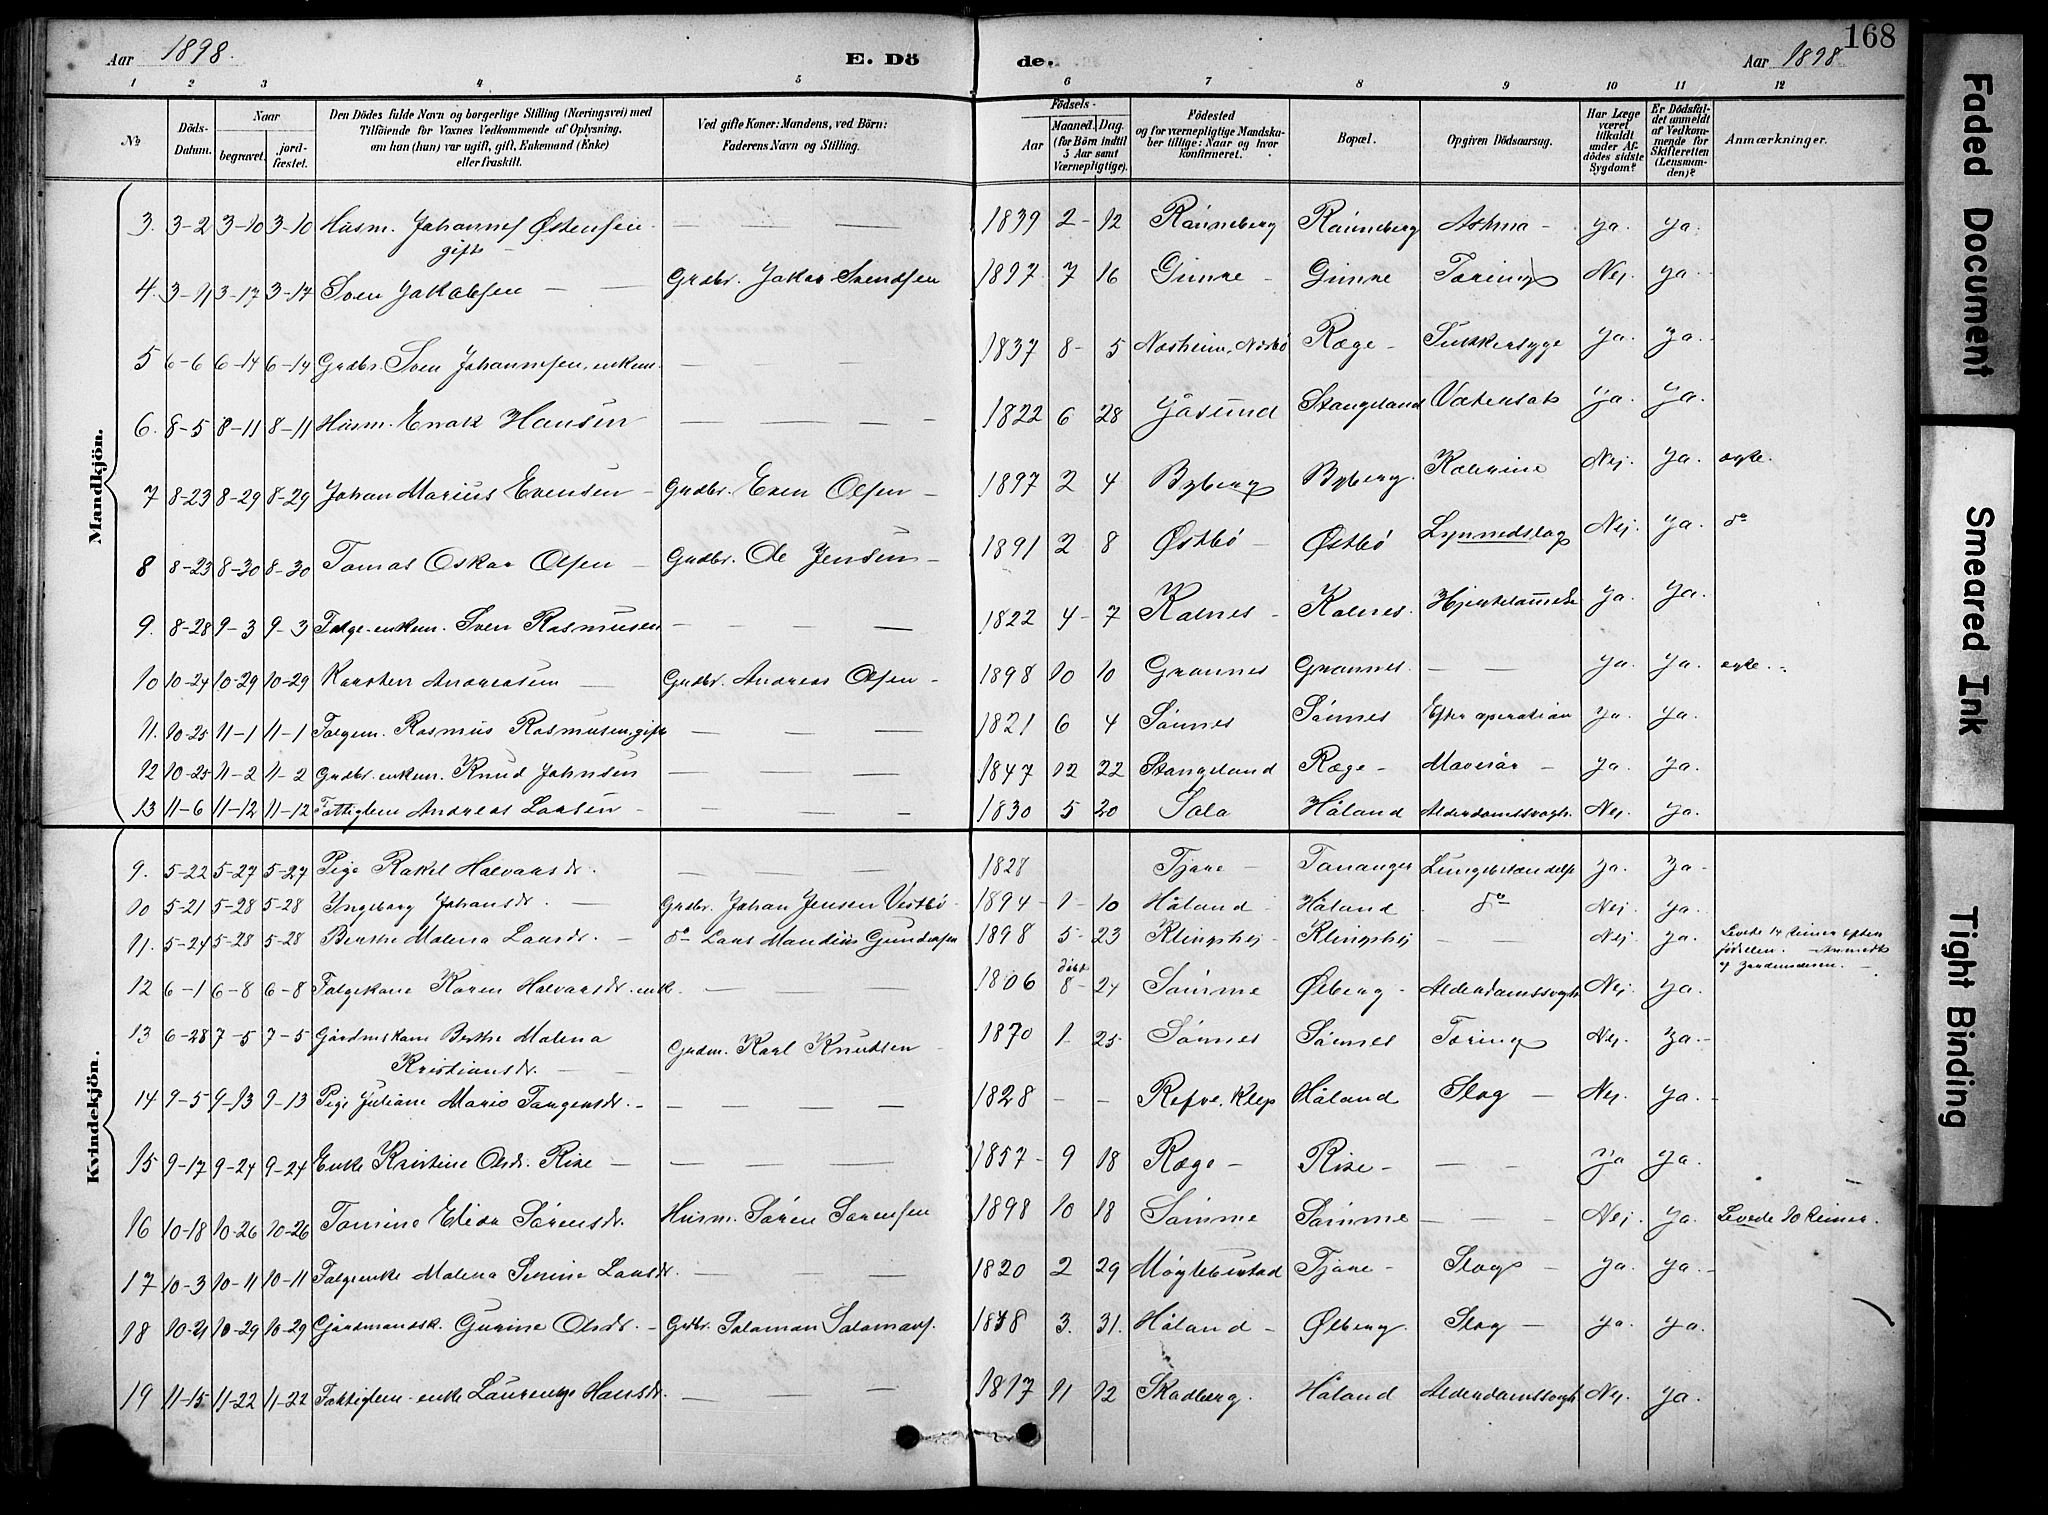 Aar 1898. E. Dö
de. Aar 1898 168
1 2 3 4 5 6 7 8 9 10 11 12
No Döds-Datum. Naar begravet. jordfæstet. Den Dödes fulde Navn og borgerlige Stilling (Næringsvei) med Tilföiende for Voxnes Vedkommende af Oplysning, om han (hun) var ugift, gift, Enkemand (Enke) eller fraskilt. Ved gifte Koner: Mandens, ved Börn: Faderens Navn og Stilling. Födsels- Aar Maaned. Dag. (for Börn indtil 5 Aar samt Værnepligtige). Födested og for værnepligtige Mandskaber tillige: Naar og hvor konfirmeret. Bopæl. Opgiven Dödsaarsag. Har Læge været tilkaldt under Afdödes sidste Sygdom? Er Dödsfaldet anmeldt af Vedkommende for Skifteretten (Lensmanden)? Anmærkninger.
Mandkjön.
3. 3-2 3-10 3-10 Husm. Johannes Østensen gift — — — 1839 2- 12 Rånneberg Rånneberg Asthma - ja. ja.
4. 3-11 3-17 3-17 Sven Jakobsen — — Grdbr. Jakob Svendsen 1897. 7 16 Gimre - Gimre Tæring Nej. ja.
5 6-6 6-14 6-14 Grdbr. Sven Johannesen, enkem. — — — 1837 8- 5 Næsheim, Næsbø Ræge - Sukkersyge ja. ja.
6. 8-5 8-11 8-11 Husm. Enok Hansen — — — 1822 6 28 Jåsund Stangeland Vatersot ja. ja.
7 8-23 8-29 8-29 Johan Marius Evensen - Grdbr. Even Olsen - 1897 2 4 Byberg Byberg. Kolerine Nej. ja. ægte.
8 8-23 8-30 8-30 Tomas Oskar Olsen - Grdbr. Ole Jensen - 1891 2 8 Østbø - Østbø Lynnedslag Nej. ja. do
9. 8-28 9-3 9-3 Folge-enkem. Sven Rasmusen — — — 1822 4- 7 Kolnes - Kolnes. Hjertelammelse ja. ja.
10 10-24 10-29 10-29 Karsten Andreasen — Grdbr. Andreas Olsen - 1898 10 10 Grannes Grannes. — — ja. ja. ægte.
11. 10-25 11-1 11-1 Folgem. Rasmus Rasmusen, gift — — — 1821 6 4 Sønnes Sønnes Efter operation ja. ja.
12 10-25 11-2 11-2 Grdbr. enkem. Knud Johnsen — — — 1847 12 22 Stangeland Ræge - Mavesår - ja. ja.
13 11-6 11-12 11-12 Fattiglem Andreas Larsen - — — — 1830 5 20 Sola Håland Alderdomssvagh. Nej. ja.
Kvindekjön.
9. 5-22 5-27 5-27 Pige Rakel Halvarsdr. — — — 1828 Tjore - Tananger Lungebetændelse ja. ja -
10 5-21 5-28 5-28 Ingeborg Johansdr. - Grdbr. Johan Jensen Vestbø - 1894 - 1- 10 Håland - Håland do Nej. ja.
11. 5-24 5-28 5-28 Berthe Malena Larsdr. - do Lars Mandius Gundersen 1898 5- 23 Klingshej - Klingshej — — Nej. ja. Levede 14 timer efter fødselen. Anmeldt af Jordemoderen. -
12 6-1 6-8 6-8 Folgekone Karen Halvarsdr. enke. — — 1806 døbt 8- 24 Sømme Ølberg - Alderdomssvagh. Nej. ja.
13 6-28 7-5 7-5 Gårdmskone Berthe Malena Kristiansdr. — Grdm. Karl Knutsen - 1870 1. 25 Sønnes Sønnes Tæring Nej. ja. -
14 9-5 9-13 9-13 Pige Juliane Marie Torgersdr. - — — — 1828 - - Refve, Klep Håland Slag - Nej. ja. -
15 9-17 9-24 9-24 Enke Kristine Olsdr. Rise - — — — 1857 - 9 18 Ræge - Rise - — — ja ja.
16 10-18 10-26 10-26 Tomine Elida Sørensdr. Husm. Søren Sørensen 1898 10 18 Sømme Sømme — — Nej. ja. Levede 10 timer.
17 10-3 10-11 10-11 Folgeenke Malena Serine Larsdr. — — — 1820 2 29 Møgletustad Tjore - Slag - ja. ja. -
18 10-21 10-29 10-29 Gårdmandsk. Gurine Olsdr. - Grdbr. Salamon Salamons. 1838 3. 31. Håland - Ølberg. Slag - ja. ja.
19 11-15 11-22 11-22 Fattiglem - enke Laurentze Hansdr. — — — 1817 11 12 Skadberg. Håland Alderdomssvagh. Nej. ja.
Faded Document
Smeared Ink
Tight Binding